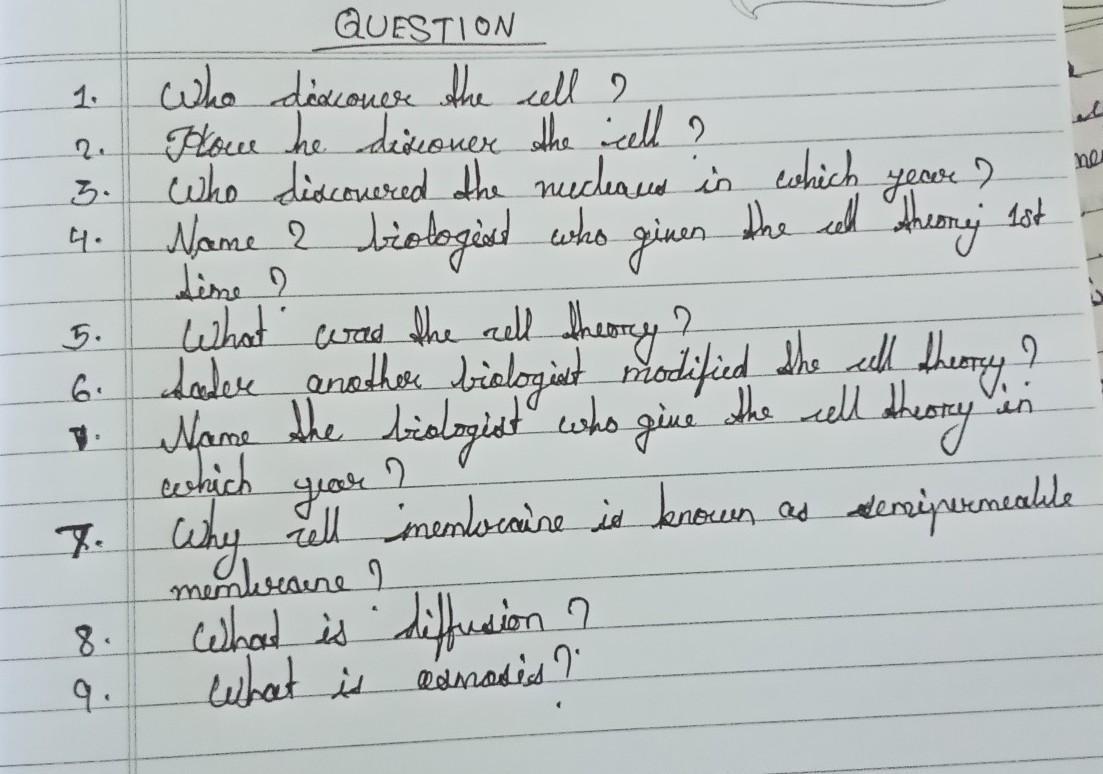 QUESTION
1. Who discover the cell ?
2. How he discover the cell ?
3. Who discovered the nucleaus in which year ?
4. Name 2 biologist who given the cell theory 1st
time ?
5. What was the cell theory ?
6. Later another biologist modified the cell theory ?
Name the biologist who give the cell theory in
which year ?
7. Why cell membraine is known as semipermeable
membrane ?
8. What is diffusion ?
9. What is osmosis ?